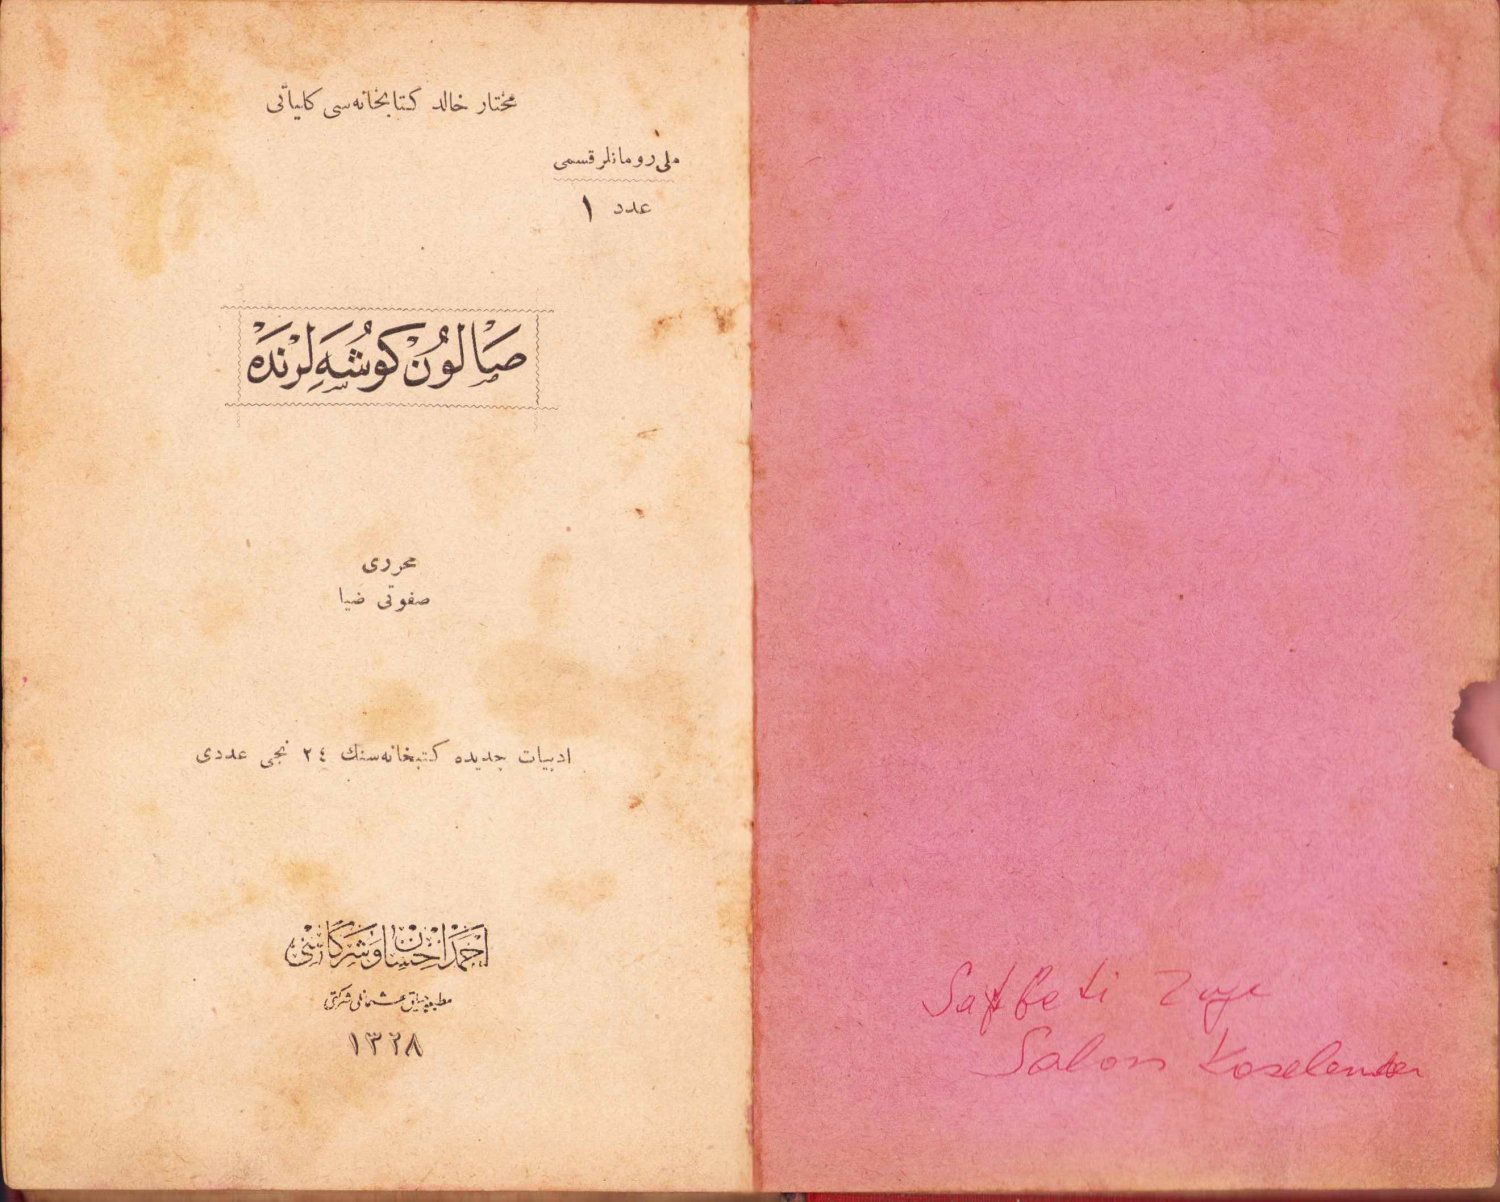 مختار خالد كتابخانه‌سی كلیاتی
ملی رومانلر قسمی
عدد ۱
صَالُونْ كوشُه‌لرنْدَه
محرری
صفوتی ضیا
ادبیات جدیده كتبخانه‌سنك ٢٤ نجی عددی
احمد احسان و شركاسی
مطبعه‌جیلق عثمانلی شركتی
١٣٢٨
Saffeti Ziya
Salon Koselerinde